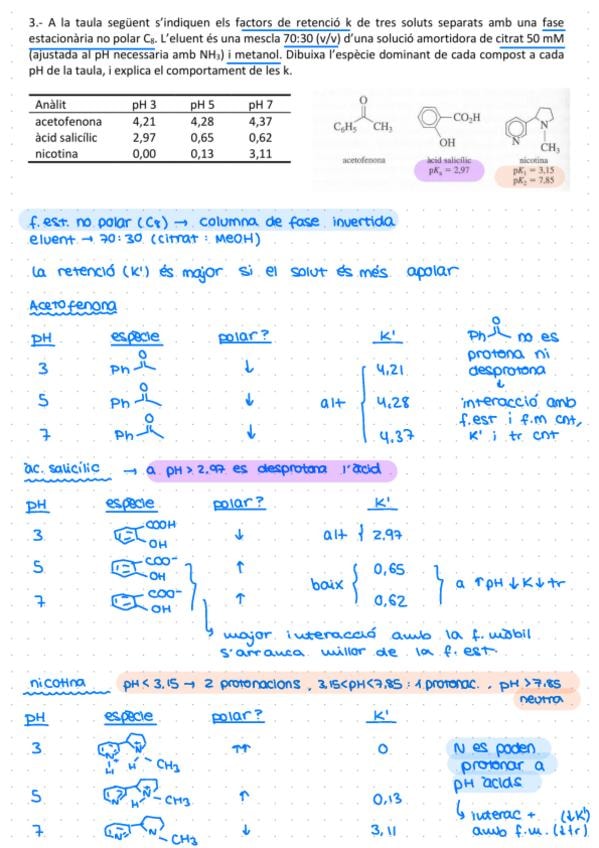 3.- A la taula següent s'indiquen els factors de retenció k de tres soluts separats amb una fase
estacionària no polar C₈. L'eluent és una mescla 70:30 (v/v) d'una solució amortidora de citrat 50 mM
(ajustada al pH necessaria amb NH₃) i metanol. Dibuixa l'espècie dominant de cada compost a cada
pH de la taula, i explica el comportament de les k.
Anàlit pH 3 pH 5 pH 7
acetofenona 4,21 4,28 4,37
àcid salicílic 2,97 0,65 0,62
nicotina 0,00 0,13 3,11
O
C₆H₅ CH₃
acetofenona
CO₂H
OH
àcid salicílic
pKₐ = 2,97
N
N
CH₃
nicotina
pK₁ = 3,15
pK₂ = 7,85
f. est. no polar (C₈) → columna de fase invertida
eluent → 70:30 (citrat : MeOH)
la retenció (K') és major si el solut és més apolar
Acetofenona
pH espècie polar? K'
3 Ph O ↓ 4,21
5 Ph O ↓ alt 4,28
7 Ph O ↓ 4,37
Ph O no es
protona ni
desprotona
↓
interacció amb
f.est i f.m cnt,
K' i tr cnt
àc. salicílic → a pH > 2,97 es desprotona l'àcid
pH espècie polar? K'
3 COOH OH ↓ alt { 2,97
5 COO⁻ OH ↑ 0,65
baix { } a ↑pH ↓K ↓tr
7 COO⁻ OH ↑ 0,62
↳ major interacció amb la f. mòbil
s'arranca millor de la f. est.
nicotina pH < 3,15 → 2 protonacions , 3,15<pH<7,85 : 1 protonac. , pH > 7,85
neutra
pH espècie polar? K'
3 N⁺ H N⁺ H CH₃ ↑↑ 0
5 N N⁺ H CH₃ ↑ 0,13
7 N N CH₃ ↓ 3,11
N es poden
protonar a
pH àcids
↳ interac + (↓K')
amb f.m. (↓tr)